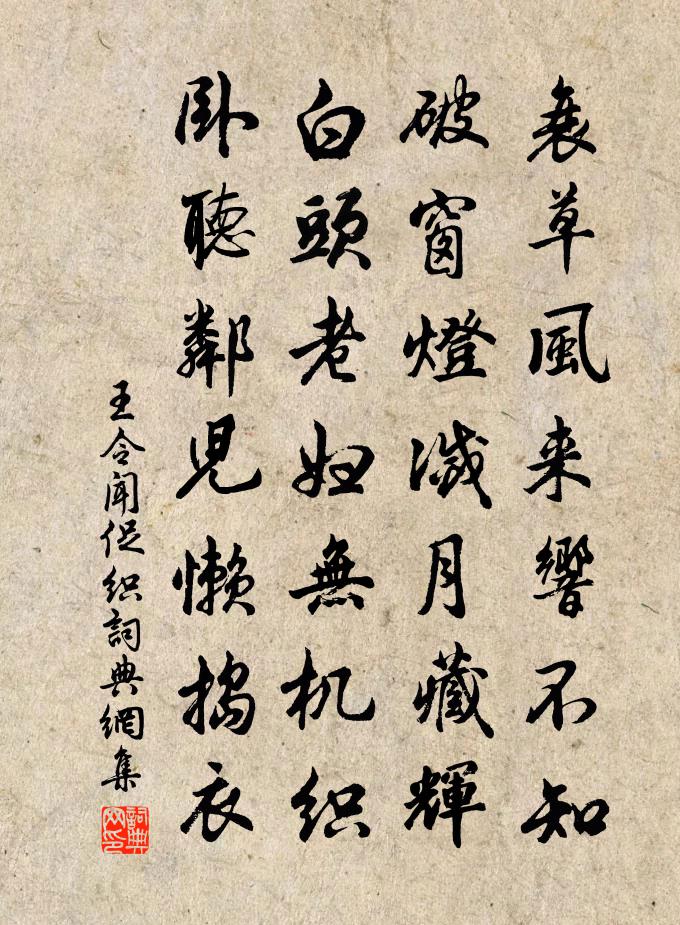 衰草風来響不知
破窗燈滅月藏輝
白頭老婦無机织
卧聽鄰兒懒搗衣
王令聞促织詞典網集
詞典网印